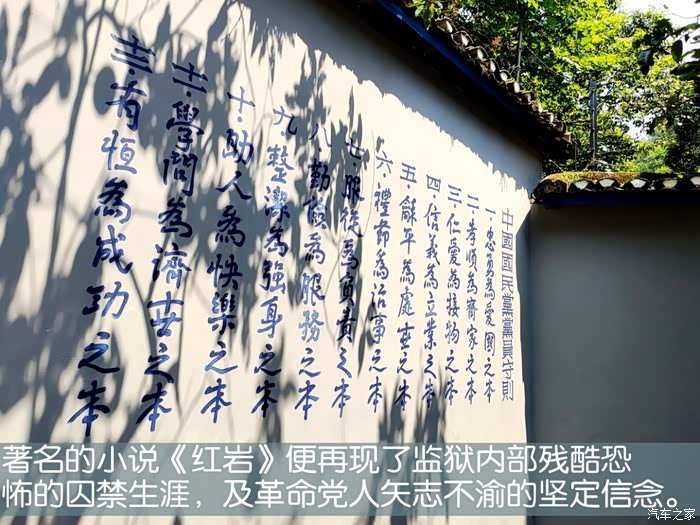 中國國民黨黨員守則
一·忠勇為愛國之本
二·孝順為齊家之本
三·仁愛為接物之本
四·信義為立業之本
五·和平為處世之本
六·禮節為治事之本
七·服從為負責之本
八·勤儉為服務之本
九·整潔為強身之本
十·助人為快樂之本
十一·學問為濟世之本
十二·有恆為成功之本
著名的小说《红岩》便再现了监狱内部残酷恐
怖的囚禁生涯，及革命党人矢志不渝的坚定信念。
汽车之家